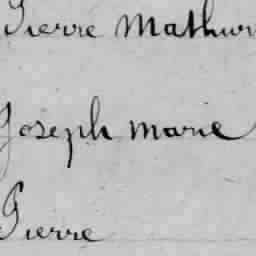 Pierre Mathur
Joseph Marie
Pierre